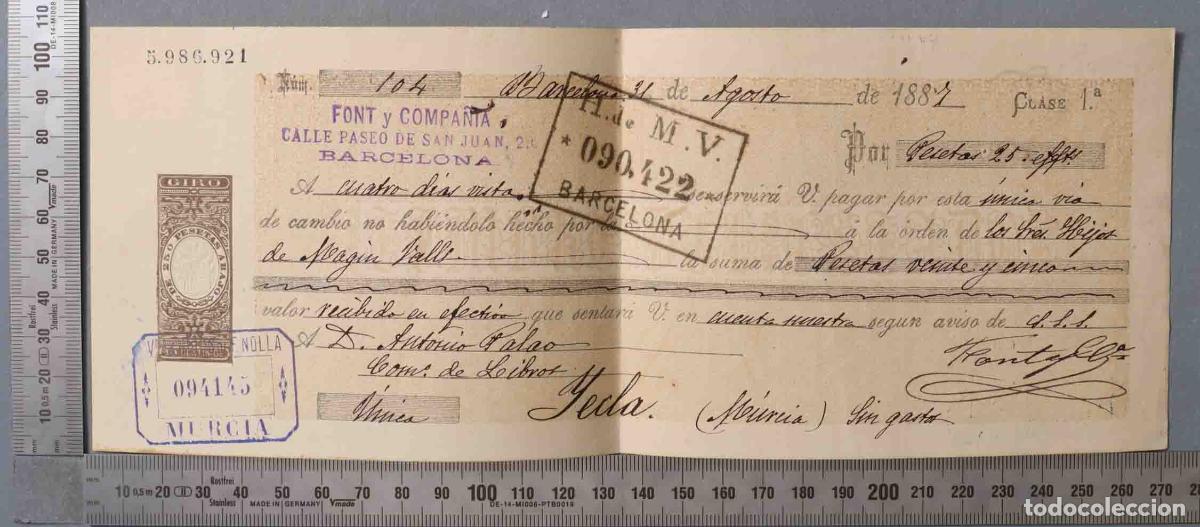 5.986.921
Núm. 104 Barcelona 31 de Agosto de 1887 CLASE 1.ª
FONT y COMPAÑIA,
CALLE PASEO DE SAN JUAN,
BARCELONA
H. de M. V.
* 090.422
BARCELONA
Por Pesetas 25 = effts
A cuatro dias vista se servirá V. pagar por esta única via
de cambio no habiéndolo hecho por la á la órden de los Sres. Hijos
de Magin Valls la suma de Pesetas veinte y cinco
valor recibido en efectivo que sentará V. en cuenta nuestra segun aviso de S.S.S.
A D. Antonio Palao
Comº de Libros
Yecla. (Múrcia) Sin gastos
Única
Font y Cª
GIRO
DE 250 PESETAS ABAJO
NOLLA
094145
MURCIA
Rostfrei
Stainless
MADE IN GERMANY
Vmade
DE-14-MI008-PTB0019
10 0,5 m 20 II 30 40 50 60 70 80 90 100 110 120 130 140 150 160 170 180 190 200 210 220 230 240 250 260 270
todocoleccion